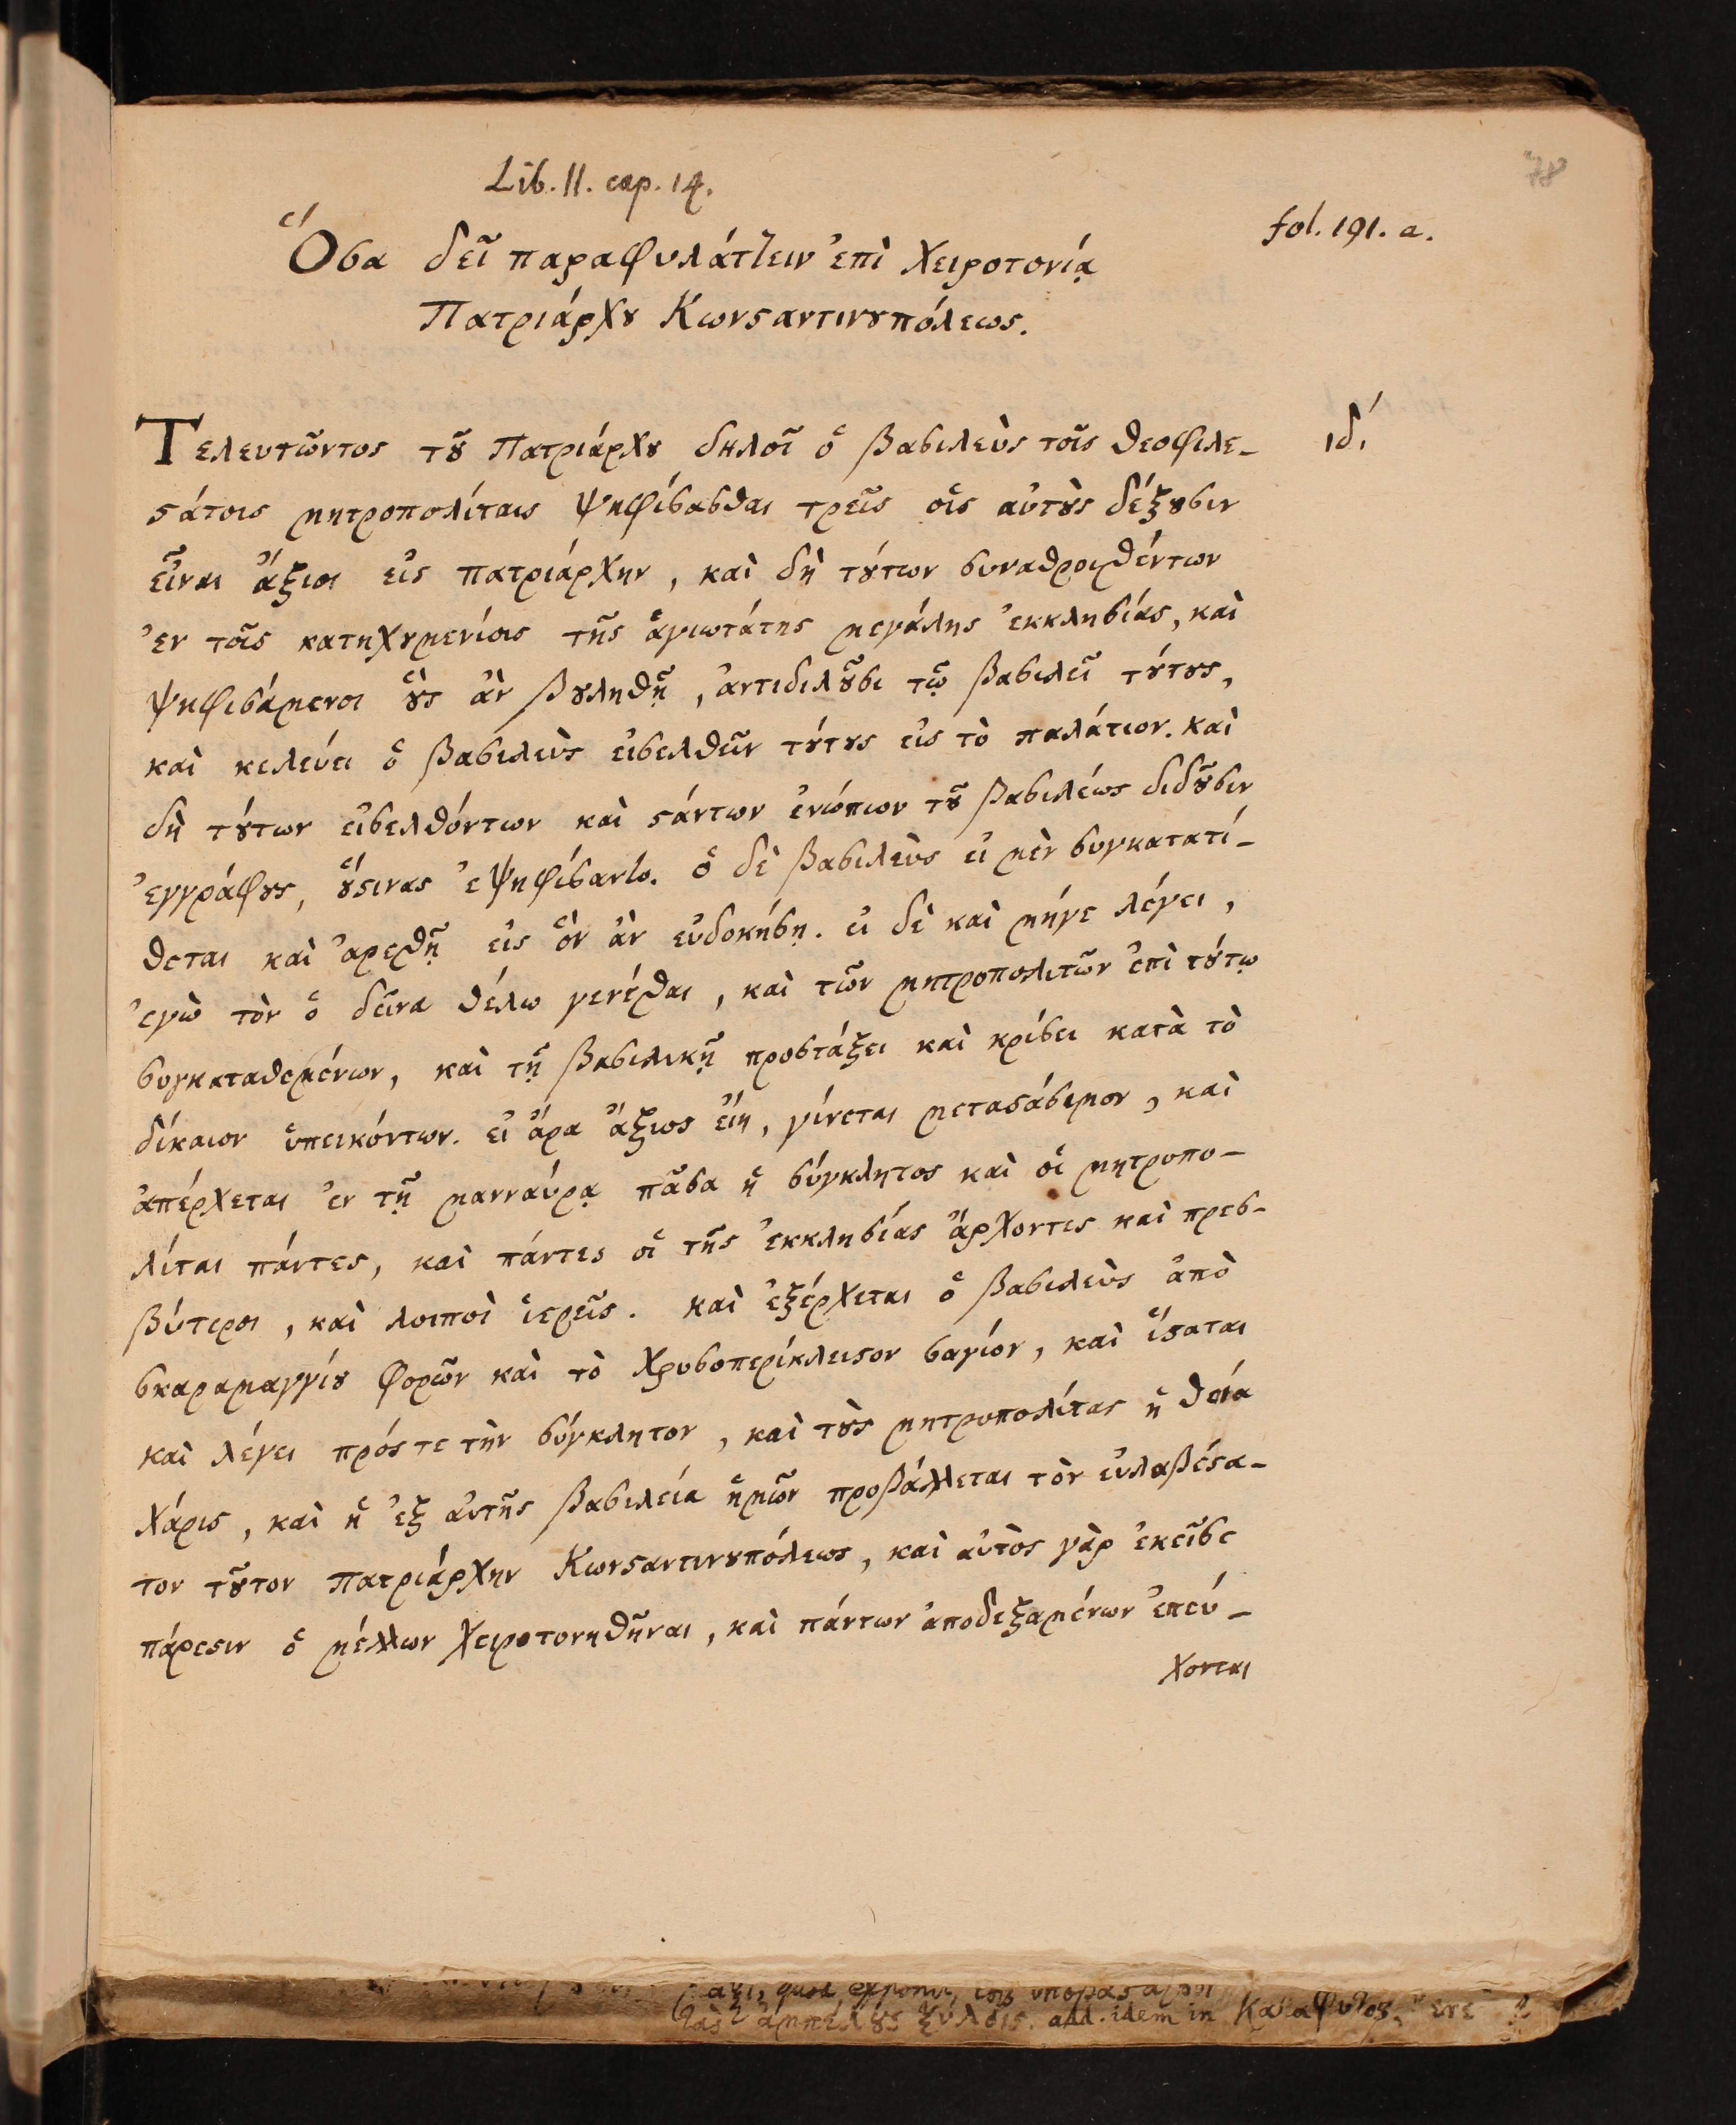 78
Lib. II. cap. 14.
fol. 191. a.
Ὅσα δεῖ παραφυλάττειν ἐπὶ χειροτονίᾳ
Πατριάρχȣ Κωνϛαντινȣπόλεως.
Τελευτῶντος τȣ͂ Πατριάρχȣ δηλοῖ ὁ βασιλεὺς τοῖς θεοφιλε-
ιδ΄
ϛάτοις μητροπολίταις ψηφίσασθαι τρεῖς οἷς αὐτȣ̀ς δέξȣσιν
εἶναι ἄξιοι εἰς πατριάρχην, καὶ δὴ τȣ́των συναθροισθέντων
ἐν τοῖς κατηχȣμενίοις τῆς ἁγιωτάτης μεγάλης ἐκκλησίας, καὶ
ψηφισάμενοι ȣ̔̀ς ἂν βȣληθῇ, ἀντιδιλȣ͂σι τῷ βασιλεῖ τȣ́τȣς,
καὶ κελεύει ὁ βασιλεὺς εἰσελθεῖν τȣ́τȣς εἰς τὸ παλάτιον. καὶ
δὴ τȣ́των εἰσελθόντων καὶ ϛάντων ἐνώπιον τȣ͂ βασιλέως διδȣ͂σιν
ἐγγράφȣς, ȣ̔́ϛινας ἐψηφίσαντο. ὁ δὲ βασιλεὺς εἰ μὲν συγκατατί-
θεται καὶ ἀρεσθῇ εἰς ὃν ἂν εὐδοκήσῃ. εἰ δὲ καὶ μήγε λέγει,
ἐγὼ τὸν ὁ δεῖνα θέλω γενέσθαι, καὶ τῶν μητροπολιτῶν ἐπὶ τȣ́τῳ
συγκαταθεμένων, καὶ τῇ βασιλικῇ προστάξει καὶ κρίσει κατὰ τὸ
δίκαιον ὑπεικόντων. εἰ ἄρα ἄξιος εἴη, γίνεται μεταϛάσιμον, καὶ
ἀπέρχεται ἐν τῇ μανναύρᾳ πᾶσα ἡ σύγκλητος καὶ οἱ μητροπο-
λίται πάντες, καὶ πάντες οἱ τῆς ἐκκλησίας ἄρχοντες καὶ πρεσ-
βύτεροι, καὶ λοιποὶ ἱερεῖς. καὶ ἐξέρχεται ὁ βασιλεὺς ἀπὸ
σκαραμαγγίȣ φορῶν καὶ τὸ χρυσοπερίκλειϛον σαγίον, καὶ ἵϛαται
καὶ λέγει πρός τε τὴν σύγκλητον, καὶ τȣ̀ς μητροπολίτας ἡ θεία
χάρις, καὶ ἡ ἐξ αὐτῆς βασιλεία ἡμῶν προβάλλεται τὸν εὐλαβέϛα-
τον τȣ͂τον πατριάρχην Κωνϛαντινȣπόλεως, καὶ αὐτὸς γὰρ ἐκεῖσε
πάρεϛιν ὁ μέλλων χειροτονηθῆναι, καὶ πάντων ἀποδεξαμένων ἐπεύ-
χονται
ἀμπέλȣς ξύλοις. add. idem in